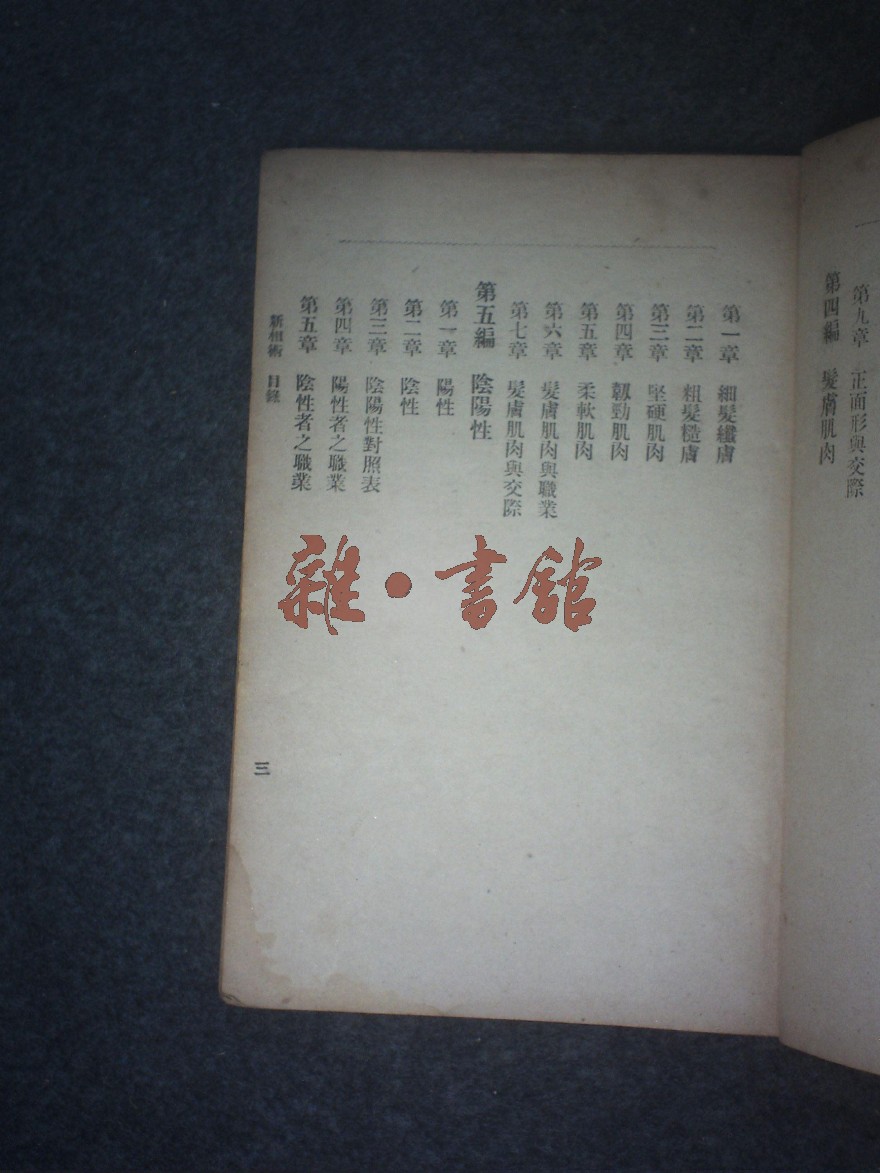 第九章 正面形與交際
第四編 髮膚肌肉
第一章 細髮纖膚
第二章 粗髮糙膚
第三章 堅硬肌肉
第四章 韌勁肌肉
第五章 柔軟肌肉
第六章 髮膚肌肉與職業
第七章 髮膚肌肉與交際
第五編 陰陽性
第一章 陽性
第二章 陰性
第三章 陰陽性對照表
第四章 陽性者之職業
第五章 陰性者之職業
新相術 目錄
三
雜·書館